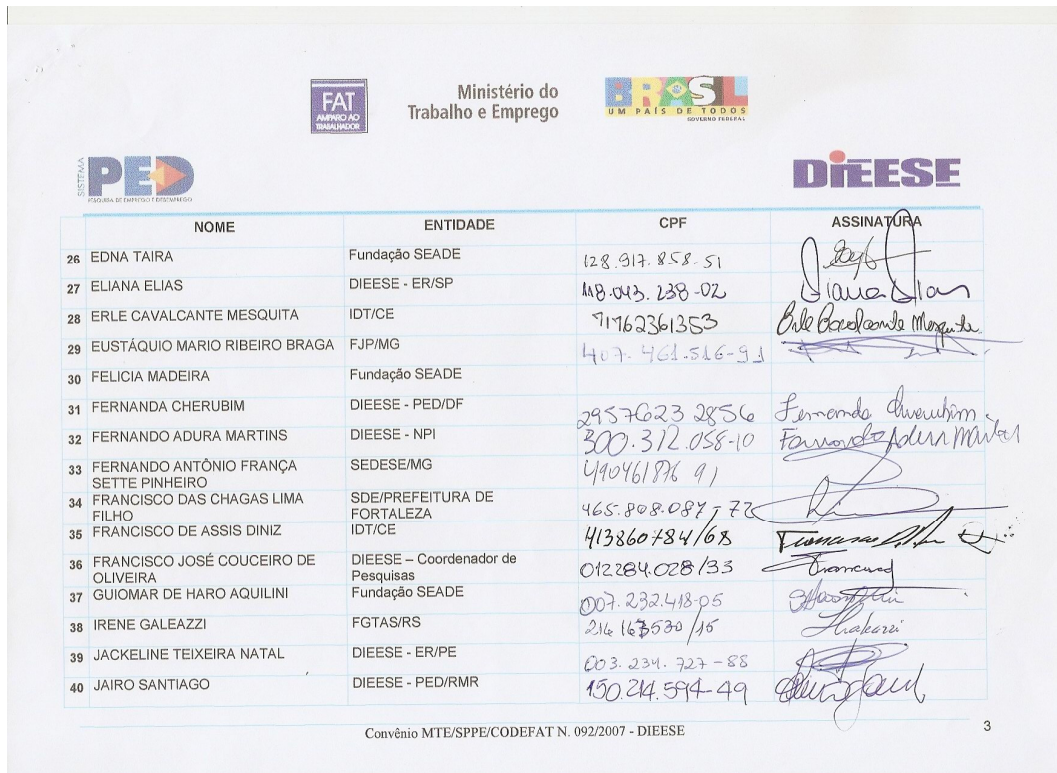 FAT
AMPARO AO
TRABALHADOR
Ministério do
Trabalho e Emprego
BRASIL
UM PAÍS DE TODOS
GOVERNO FEDERAL
SISTEMA
PED
PESQUISA DE EMPREGO E DESEMPREGO
DIEESE
NOME ENTIDADE CPF ASSINATURA
26 EDNA TAIRA Fundação SEADE 128.917.858-51
27 ELIANA ELIAS DIEESE - ER/SP 118.043.238-02 Eliana Elias
28 ERLE CAVALCANTE MESQUITA IDT/CE 71762361353 Erle Cavalcante Mesquita
29 EUSTÁQUIO MARIO RIBEIRO BRAGA FJP/MG 407.461.516-91
30 FELICIA MADEIRA Fundação SEADE
31 FERNANDA CHERUBIM DIEESE - PED/DF 29576232856 Fernanda Cherubim
32 FERNANDO ADURA MARTINS DIEESE - NPI 300.312.058-10 Fernando Adura Martins
33 FERNANDO ANTÔNIO FRANÇA SEDESE/MG 490461876 91
SETTE PINHEIRO
34 FRANCISCO DAS CHAGAS LIMA SDE/PREFEITURA DE 465.808.087-72
FILHO FORTALEZA
35 FRANCISCO DE ASSIS DINIZ IDT/CE 413860784/68
36 FRANCISCO JOSÉ COUCEIRO DE DIEESE – Coordenador de 012284.028/33
OLIVEIRA Pesquisas
37 GUIOMAR DE HARO AQUILINI Fundação SEADE 007.232.418-05
38 IRENE GALEAZZI FGTAS/RS
39 JACKELINE TEIXEIRA NATAL DIEESE - ER/PE 003.234.727-88
40 JAIRO SANTIAGO DIEESE - PED/RMR 150.214.594-49
Convênio MTE/SPPE/CODEFAT N. 092/2007 - DIEESE
3